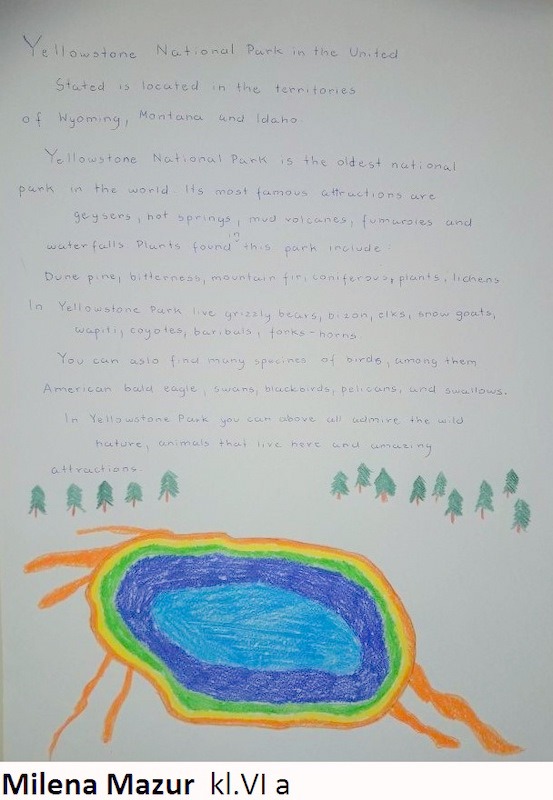 Yellowstone National Park in the United
Stated is located in the territories
of Wyoming, Montana and Idaho
Yellowstone National Park is the oldest national
park in the world. Its most famous attractions are
geysers, hot springs, mud volcanes, fumaroles and
waterfalls Plants found in this park include:
Dune pine, bitterness, mountain fir, coniferous, plants, lichens
In Yellowstone Park live grizzly bears, bizon, elks, snow goats,
wapiti, coyotes, baribals, forks-horns.
You can aslo find many specines of birds, among them
American bald eagle, swans, blackbirds, pelicans, and swallows.
In Yellowstone Park you can above all admire the wild
nature, animals that live here and amazing
attractions.
Milena Mazur kl.VI a